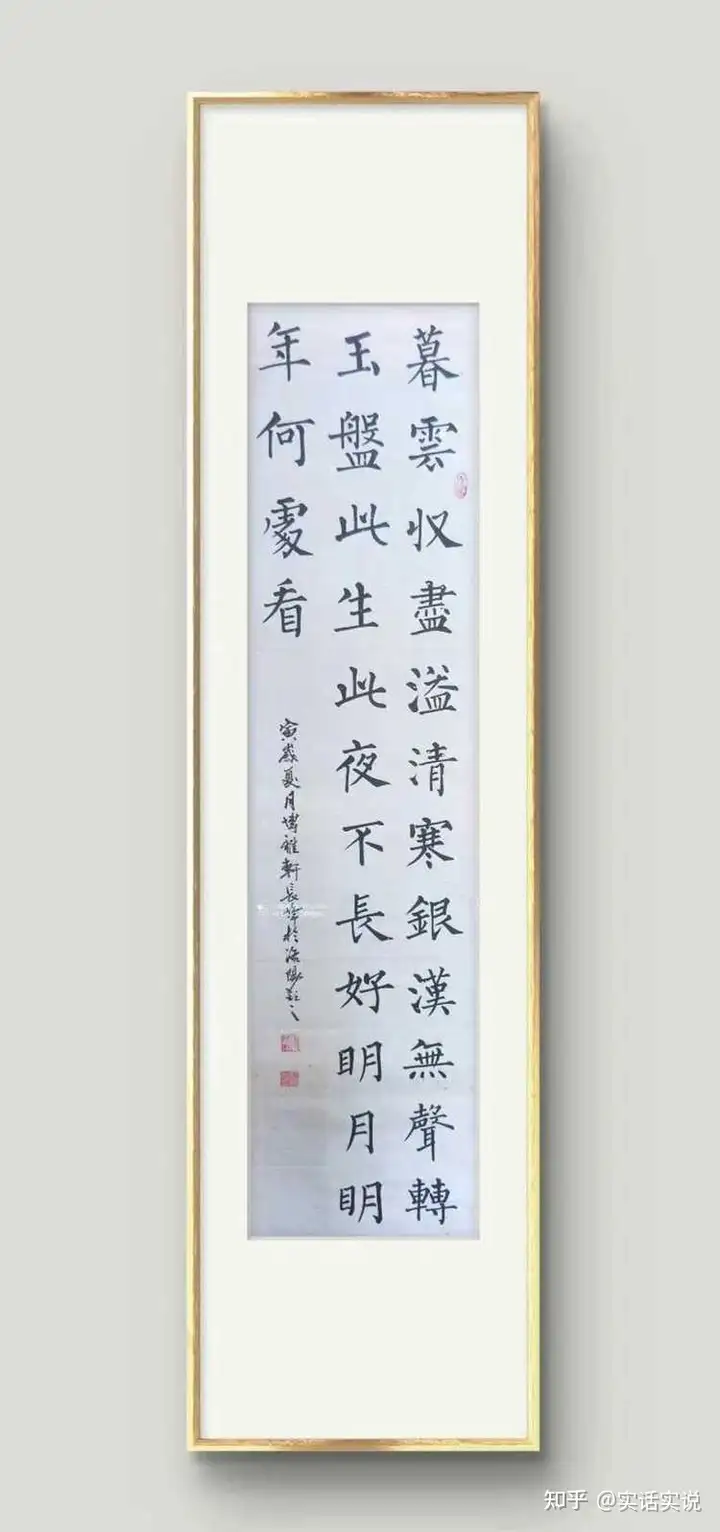 暮雲収盡溢清寒銀漢無聲轉
玉盤此生此夜不長好明月明
年何處看
寅歲夏月博雅軒長
知乎 @实话实说